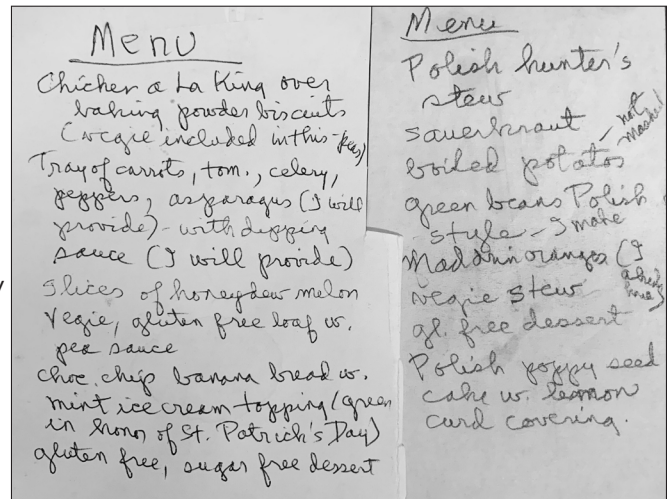 Menu
Chicken a La King over
baking powder biscuits
(vegie included in this - peas)
Tray of carrots, tom., celery,
peppers, asparagus (I will
provide) - with dipping
sauce (I will provide)
Slices of honeydew melon
Vegie, gluten free loaf w.
pea sauce
Choc. chip banana bread w.
mint ice cream topping (green
in honor of St. Patrick's Day)
gluten free, sugar free dessert
Menu
Polish hunter's
stew
sauerkraut
boiled potatos - not mashed
green beans Polish
style - I make
Madarin oranges (I already have)
vegie stew
gl. free dessert
Polish poppy seed
cake w. lemon
curd covering.